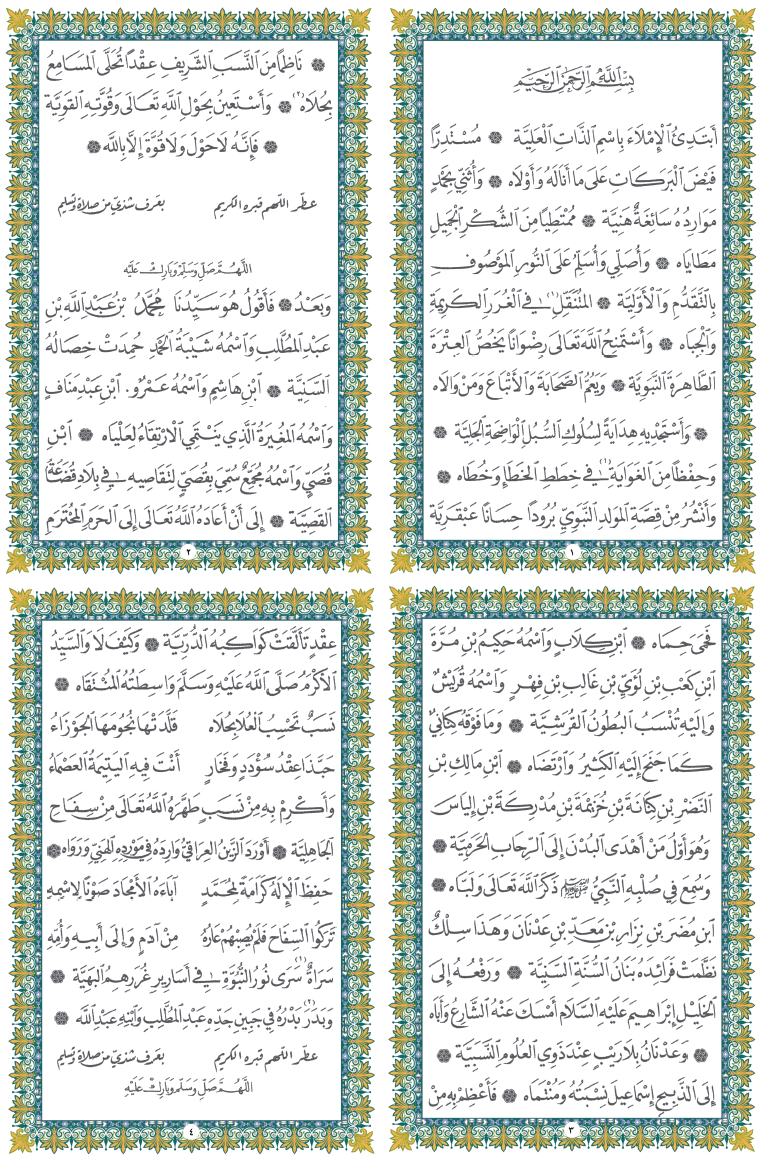 بِسْمِ اللَّهِ الرَّحْمٰنِ الرَّحِيْمِ
أَبْتَدِئُ الْإِمْلَاءَ بِاسْمِ الذَّاتِ الْعَلِيَّة ۞ مُسْتَدِرًّا
فَيْضَ الْبَرَكَاتِ عَلَى مَا أَنَالَهُ وَأَوْلَاه ۞ وَأُثَنِّي بِحَمْدٍ
مَوَارِدُهُ سَائِغَةٌ هَنِيَّة ۞ مُمْتَطِيًا مِنَ الشُّكْرِ الْجَمِيلِ
مَطَايَاه ۞ وَأُصَلِّي وَأُسَلِّمُ عَلَى النُّورِ الْمَوْصُوفِ
بِالتَّقَدُّمِ وَالْأَوَّلِيَّة ۞ الْمُنْتَقِلِ فِي الْغُرَرِ الْكَرِيمَةِ
وَالْجِبَاه ۞ وَأَسْتَمْنِحُ اللَّهَ تَعَالَى رِضْوَانًا يَخُصُّ الْعِتْرَةَ
الطَّاهِرَةَ النَّبَوِيَّة ۞ وَيَعُمُّ الصَّحَابَةَ وَالْأَتْبَاعَ وَمَنْ وَالَاه
۞ وَأَسْتَجْدِيهِ هِدَايَةً لِسُلُوكِ السُّبُلِ الْوَاضِحَةِ الْجَلِيَّة ۞
وَحِفْظًا مِنَ الْغَوَايَةِ فِي خِطَطِ الْخَطَإِ وَخُطَاه ۞
وَأَنْشُرُ مِنْ قِصَّةِ الْمَوْلِدِ النَّبَوِيِّ بُرُودًا حِسَانًا عَبْقَرِيَّة
١
۞ نَاظِمًا مِنَ النَّسَبِ الشَّرِيفِ عِقْدًا تُحَلَّى الْمَسَامِعُ
بِحُلَاه ۞ وَأَسْتَعِينُ بِحَوْلِ اللَّهِ تَعَالَى وَقُوَّتِهِ الْقَوِيَّة
۞ فَإِنَّهُ لَا حَوْلَ وَلَا قُوَّةَ إِلَّا بِاللَّه ۞
عطّر اللّهم قبره الكريم بعَرفٍ شذيّ من صلاة وتسليم
اللَّهُمَّ صَلِّ وَسَلِّمْ وَبَارِكْ عَلَيْه
وَبَعْدُ ۞ فَأَقُولُ هُوَ سَيِّدُنَا مُحَمَّدُ بْنُ عَبْدِ اللَّهِ بْنِ
عَبْدِ الْمُطَّلِبِ وَاسْمُهُ شَيْبَةُ الْحَمْدِ حُمِدَتْ خِصَالُهُ
السَّنِيَّة ۞ ابْنِ هَاشِمٍ وَاسْمُهُ عَمْرُو. ابْنِ عَبْدِ مَنَافٍ
وَاسْمُهُ الْمُغِيرَةُ الَّذِي يَنْتَمِي الْاِرْتِقَاءُ لِعَلْيَاه ۞ ابْنِ
قُصَيٍّ وَاسْمُهُ مُجَمِّعٌ سُمِّيَ بِقُصَيٍّ لِتَقَاصِيهِ فِي بِلَادِ قُضَاعَةَ
الْقَصِيَّة ۞ إِلَى أَنْ أَعَادَهُ اللَّهُ تَعَالَى إِلَى الْحَرَمِ الْمُحْتَرَمِ
٢
فَحَمَى حِمَاه ۞ ابْنِ كِلَابٍ وَاسْمُهُ حَكِيمُ بْنِ مُرَّةَ
ابْنِ كَعْبِ بْنِ لُؤَيِّ بْنِ غَالِبِ بْنِ فِهْرٍ وَاسْمُهُ قُرَيْشٌ
وَإِلَيْهِ تُنْسَبُ الْبُطُونُ الْقُرَشِيَّة ۞ وَمَا فَوْقَهُ كِنَانِيٌّ
كَمَا جَنَحَ إِلَيْهِ الْكَثِيرُ وَارْتَضَاه ۞ ابْنِ مَالِكِ بْنِ
النَّضْرِ بْنِ كِنَانَةَ بْنِ خُزَيْمَةَ بْنِ مُدْرِكَةَ بْنِ إِلْيَاسَ
وَهُوَ أَوَّلُ مَنْ أَهْدَى الْبُدْنَ إِلَى الرِّحَابِ الْحَرَمِيَّة ۞
وَسُمِعَ فِي صُلْبِهِ النَّبِيُّ ﷺ ذَكَرَ اللَّهَ تَعَالَى وَلَبَّاه ۞
ابْنِ مُضَرَ بْنِ نِزَارِ بْنِ مَعَدِّ بْنِ عَدْنَانَ وَهَذَا سِلْكٌ
نَظَّمَتْ فَرَائِدَهُ بَنَانُ السُّنَّةِ السَّنِيَّة ۞ وَرَفْعُهُ إِلَى
الْخَلِيلِ إِبْرَاهِيمَ عَلَيْهِ السَّلَام أَمْسَكَ عَنْهُ الشَّارِعُ وَأَبَاه
۞ وَعَدْنَانُ بِلَا رَيْبٍ عِنْدَ ذَوِي الْعُلُومِ النَّسَبِيَّة ۞
إِلَى الذَّبِيحِ إِسْمَاعِيلَ نِسْبَتُهُ وَمُنْتَمَاه ۞ فَأَعْظِمْ بِهِ مِنْ
٣
عِقْدٍ تَأَلَّقَتْ كَوَاكِبُهُ الدُّرِّيَّة ۞ وَكَيْفَ لَا وَالسَّيِّدُ
الْأَكْرَمُ صَلَّى اللَّهُ عَلَيْهِ وَسَلَّمَ وَاسِطَتُهُ الْمُنْتَقَاه ۞
نَسَبٌ تَحْسِبُ الْعُلَا بِحُلَاه قَلَّدَتْهَا نُجُومَهَا الْجَوْزَاءُ
حَبَّذَا عِقْدُ سُؤْدَدٍ وَفَخَارٍ أَنْتَ فِيهِ الْيَتِيمَةُ الْعَصْمَاءُ
وَأَكْرِمْ بِهِ مِنْ نَسَبٍ طَهَّرَهُ اللَّهُ تَعَالَى مِنْ سِفَاحِ
الْجَاهِلِيَّة ۞ أَوْرَدَ الزَّيْنُ الْعِرَاقِيُّ وَارِدَهُ فِي مَوْرِدِهِ الْهَنِيِّ وَرَوَاه ۞
حَفِظَ الْإِلَهُ كَرَامَةً لِمُحَمَّدٍ آبَاءَهُ الْأَمْجَادَ صَوْنًا لِاسْمِهِ
تَرَكُوا السِّفَاحَ فَلَمْ يُصِبْهُمْ عَارُهُ مِنْ آدَمٍ وَإِلَى أَبِيهِ وَأُمِّهِ
سَرَاةٌ سَرَى نُورُ النُّبُوَّةِ فِي أَسَارِيرِ غُرَرِهِمُ الْبَهِيَّة ۞
وَبَدَرَ بَدْرُهُ فِي جَبِينِ جَدِّهِ عَبْدِ الْمُطَّلِبِ وَابْنِهِ عَبْدِ اللَّه ۞
عطّر اللّهم قبره الكريم بعَرفٍ شذيّ من صلاة وتسليم
اللَّهُمَّ صَلِّ وَسَلِّمْ وَبَارِكْ عَلَيْهِ
٤